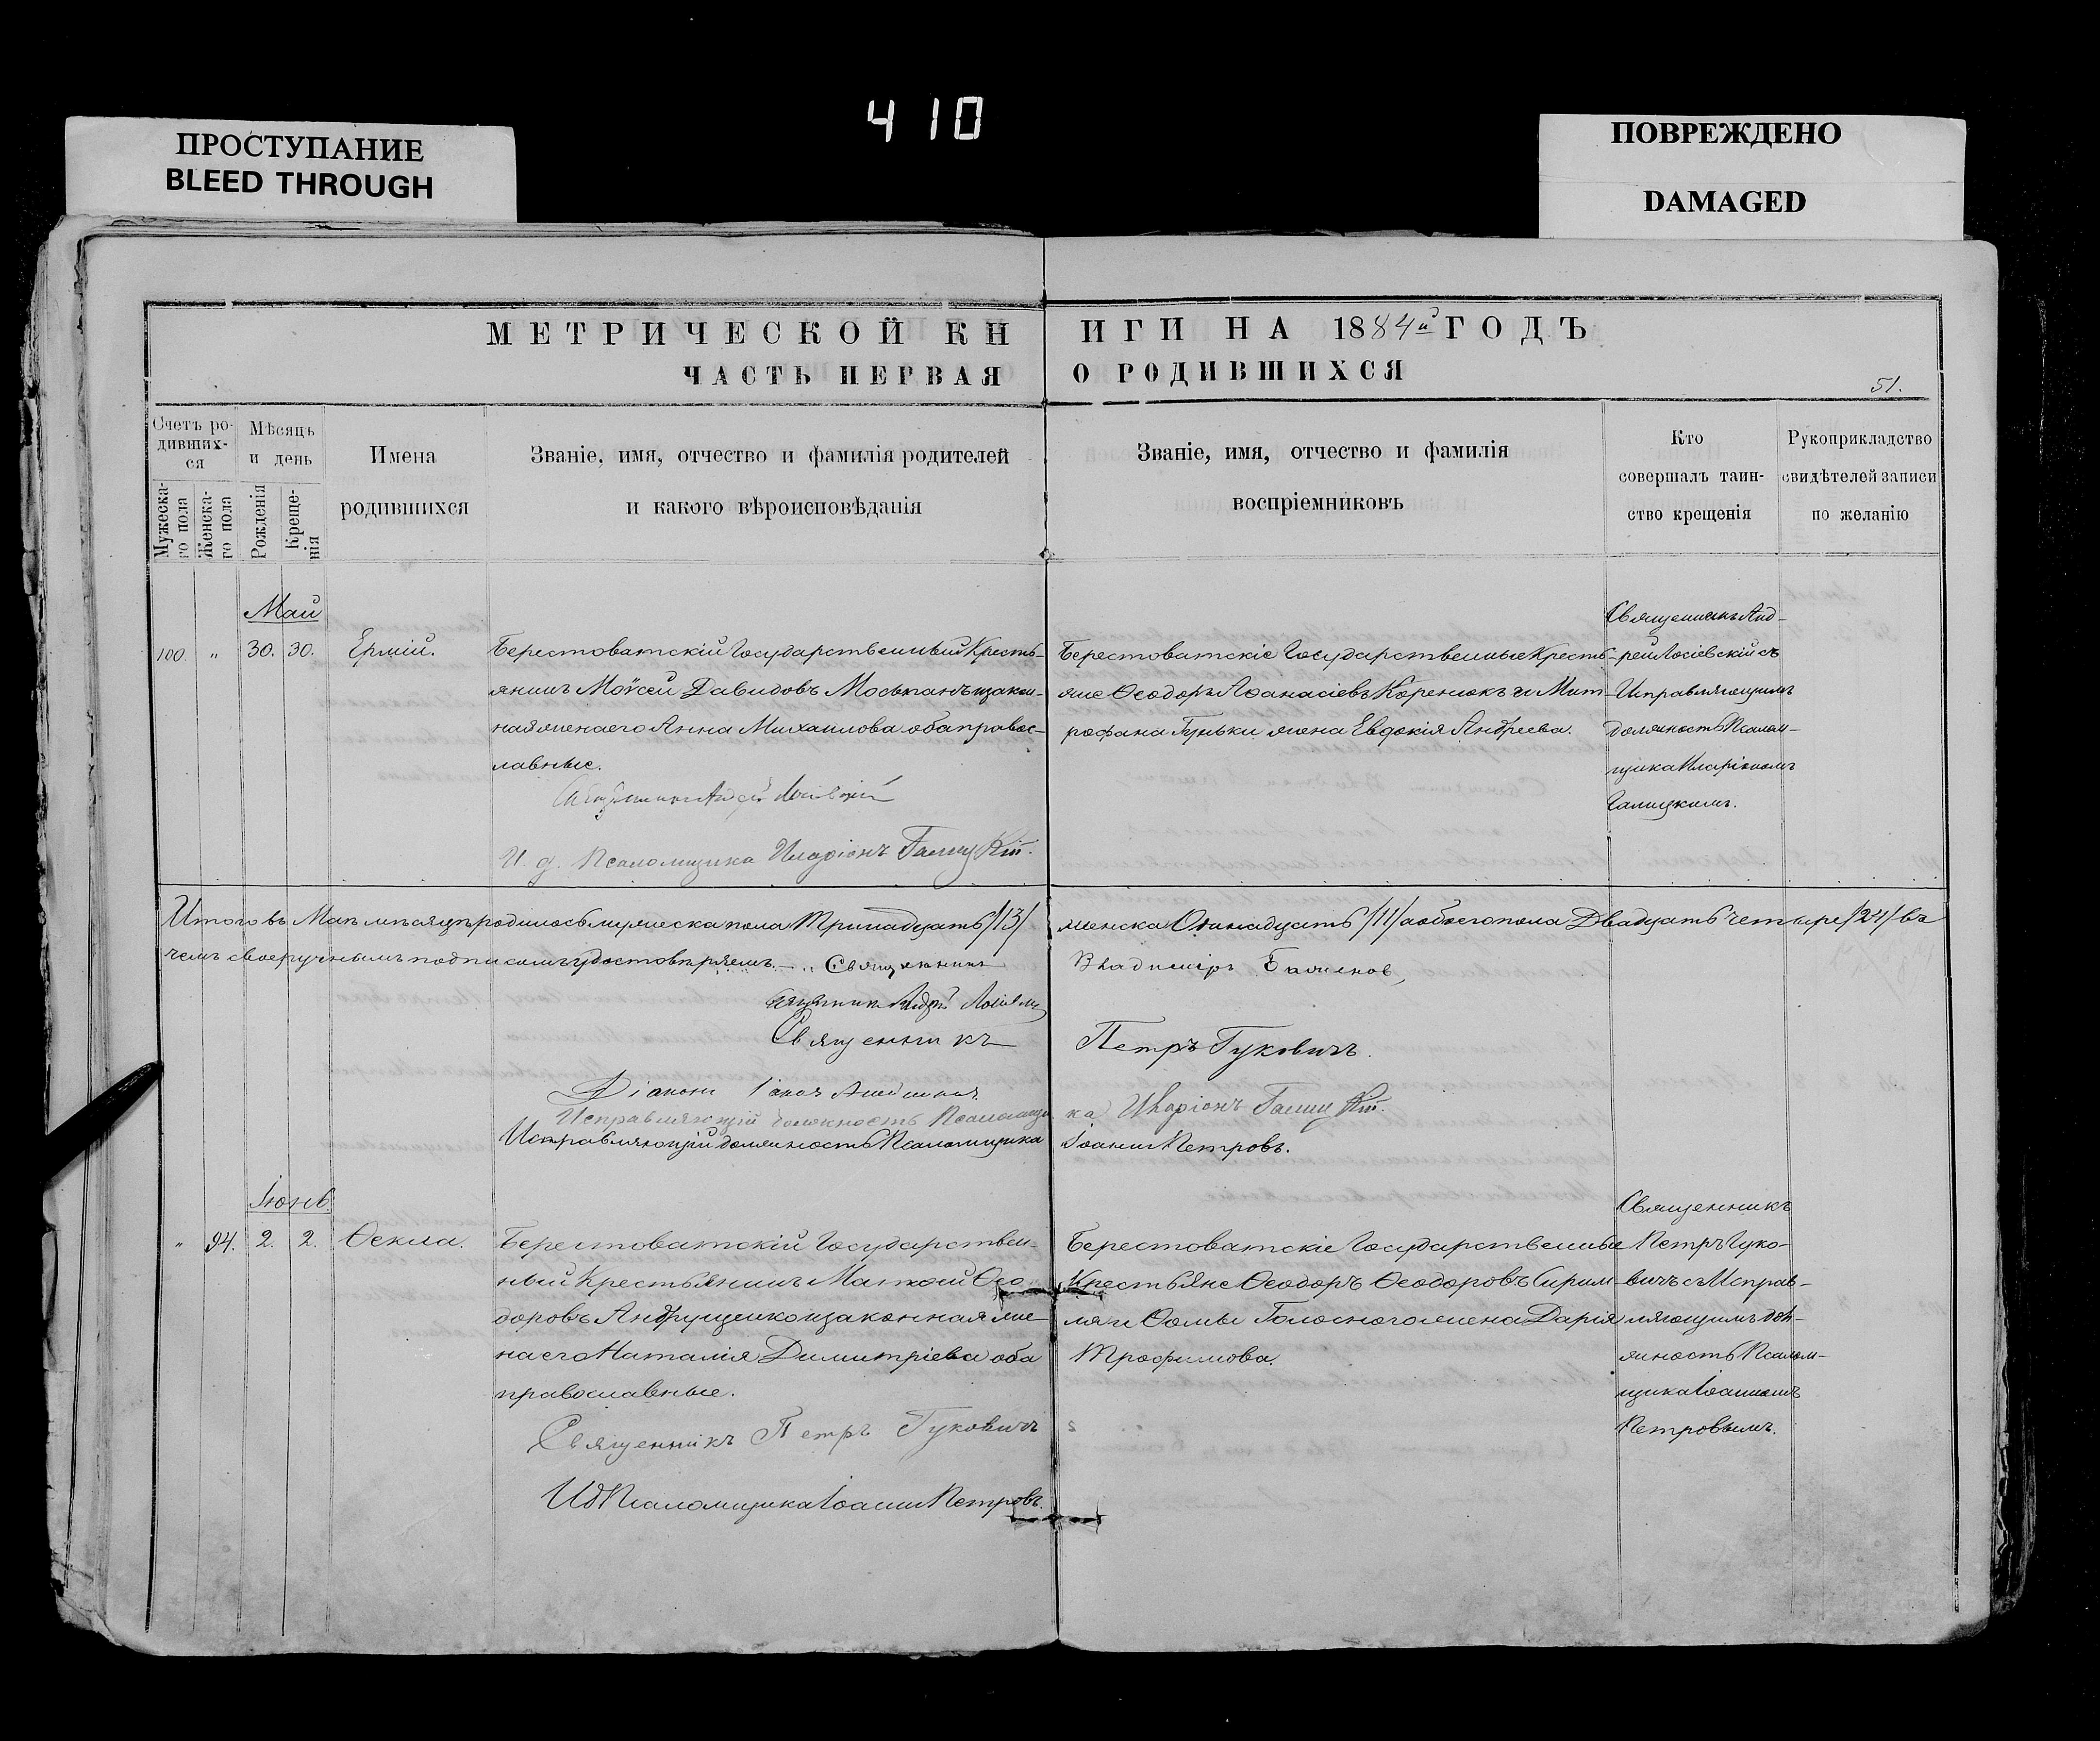 410
ПРОСТУПАНИЕ
BLEED THROUGH
ПОВРЕЖДЕНО
DAMAGED
МЕТРИЧЕСКОЙ КНИГИ НА 1884й ГОДЪ
ЧАСТЬ ПЕРВАЯ О РОДИВШИХСЯ
51.
Счетъ ро-
дивших-
ся
Мужеска-
го пола
Женска-
го пола
Мѣсяцъ
и день
Рожденія
Креще-
нія
Имена
родившихся
Званіе, имя, отчество и фамилія родителей
и какого вѣроисповѣданія
Званіе, имя, отчество и фамилія
воспріемниковъ
Кто
совершалъ таин-
ство крещенія
Рукоприкладство
свидѣтелей записи
по желанію
Май
100. " 30. 30. Ермій.
Берестоватскій Государственный Кресть-
янинъ Моѵсей Давидовъ и закон-
ная жена его Анна Михаилова оба правос-
лавные.
Священникъ Андрей Лосіевскій
И. д. Псаломщика Иларіонъ Галицкій.
Берестоватскіе Государственные Кресть-
яне Ѳеодоръ Аѳанасіевъ Коренюкъ и Мит-
рофана Гуньки жена Евдокія Андреева.
Священникъ Анд-
рей Лосіевскій съ
Исправляющимъ
должность Псалом-
щика Иларіономъ
Галицкимъ.
Итого въ Маѣ мѣсяцѣ родилось мужеска пола Тринадцать /13/ женска Одинадцать /11/ а обоего пола Двадцать четыре /24/ въ
чемъ своеручнымъ подписомъ удостовѣряемъ. Священникъ Владиміръ
Андрей
Священникъ Петръ Гуковичъ.
Діаконъ
Исправляющій должность Псаломщика Иларіонъ Галицкій.
Исправляющій должность Псаломщика Іоаннъ Петровъ.
Іюнь.
" 94. 2. 2. Ѳекла.
Берестоватскій Государствен-
ный Крестьянинъ Матѳей Ѳео-
доровъ Андрущенко и законная же-
на его Наталія Димитріева оба
православные.
Священникъ Петръ Гуковичъ
И д Псаломщика Іоаннъ Петровъ.
Берестоватскіе Государственные
Крестьяне Ѳеодоръ Ѳеодоровъ Сирим-
ля и Ѳомы Голосного жена Дарія
Трофимова.
Священникъ
Петръ Гуко-
вичъ съ Исправ-
ляющимъ дол-
жность Псалом-
щика Іоанномъ
Петровымъ.